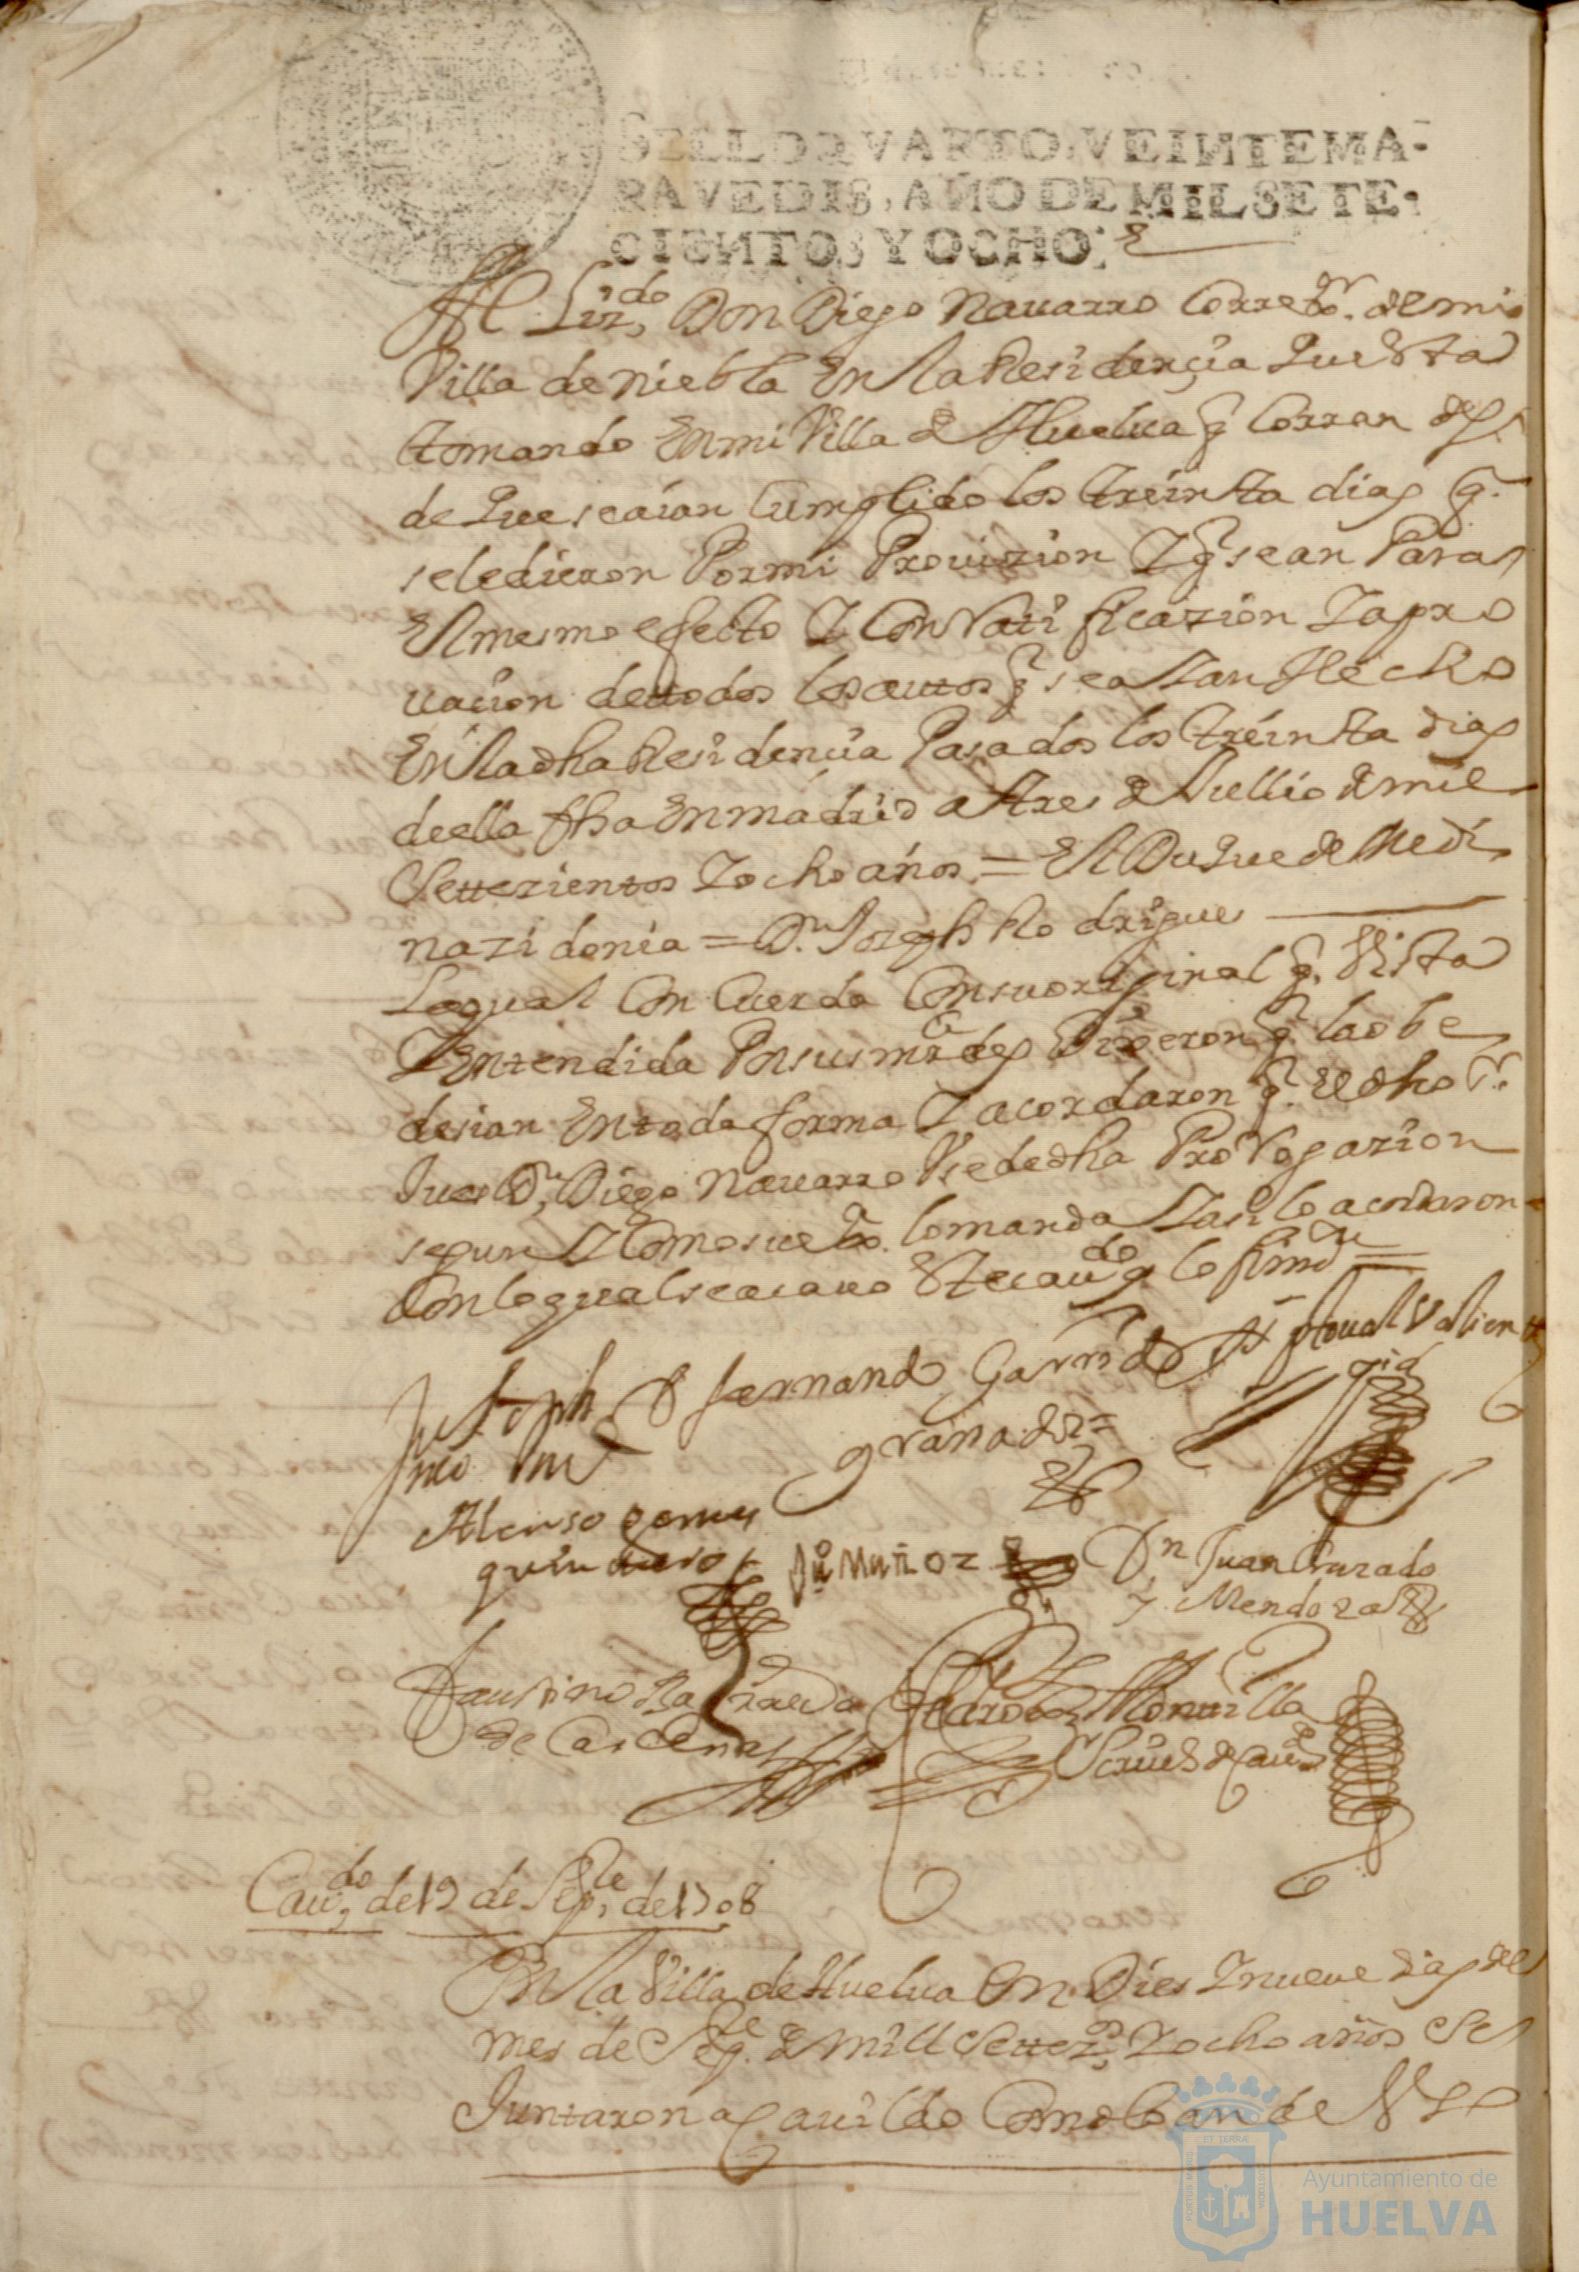 SELLO QVARTO, VEINTE MA-
RAVEDIS, AÑO DE MIL SETE-
CIENTOS Y OCHO.
Al Lizdo, Don Diego Nauarro Corredor. de mi
Villa de niebla En la Residençia que Esta
tomando En mi Villa de Huelua q Corran desde
de que seaian Cumplido los treinta dias q.
se le dieron Por mi Prouizion Y q sean Para
El mesmo efecto Y Con Ratificazion Y apro
uacion de ttodos los auttos q se aian Hecho
En la dha Residençia Pasados los treinta dias
de ella fha En madrid a tres de Jullio de mil
Settezientos Y ocho años = El Duque de Medi
nazidonia = Dn. Joseph Rodrigues
La qual Con Cuerda Con su original q. Vista
Y Entendida Por sus mrzdes Dixeron q. la obe
desian En toda forma Y acordaron q. el dho Sr.
Jues Dn, Diego nauarro Vse de dha Prorrogazion
segun Y Como su exa. lo manda Y asi lo acordaron
Con lo qual se acauo Este caudo q lo firmó
Fernando Garrido
Granado
Alonso gomes
quintero
Ju Muñoz
Dn Juan Cruzado
y Mendoza
Faustino Barreda
de Cardenas
Montilla
Scriuo de Cauo
Caudo, de 19 de Sepre, de 1708
En la Villa de Huelua En Dies Y nueue dias del
mes de Sepe. de mill Settezos, Y ocho años Se
Juntaron a Cauildo Como lo an de Vso
PORTUS MARIS
ET TERRÆ
CUSTODIA
Ayuntamiento de
HUELVA